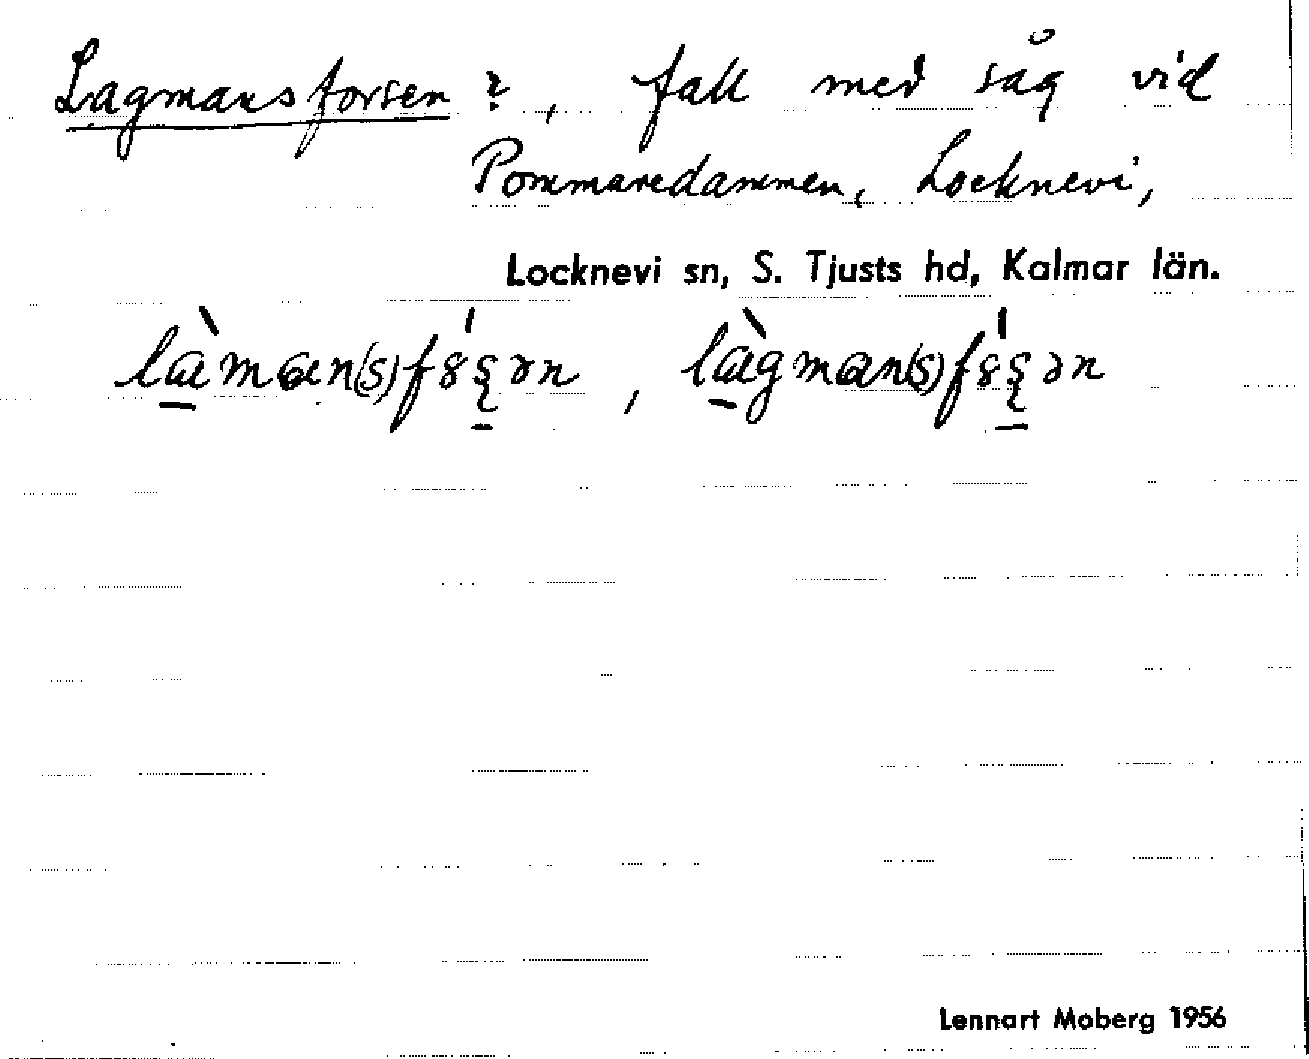 Lagmansforsen ?, fall med såg vid
Pommaredammen, Locknevi,
Locknevi sn, S. Tjusts hd, Kalmar län.
Lennart Moberg 1956